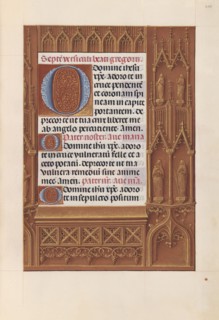 Septē versiculi beati gregorii.
O Domine ihesu
xp̄e adoro te in
cruce pendentē
et coronam spi
neam in capite
portantem. de
precor te ut tua crux liberet me
ab angelo percutiente Amen.
Pater noster. Aue maria
O Domine ihū xp̄e adoro
te in cruce vulneratū felle et a
ceto potatū. deprecor te ut tua
vulnera remediū sint anime
mee Amen. pater nr̄. Aue mª.
O Domine ihū xp̄e adoro
te in sepulcro positum